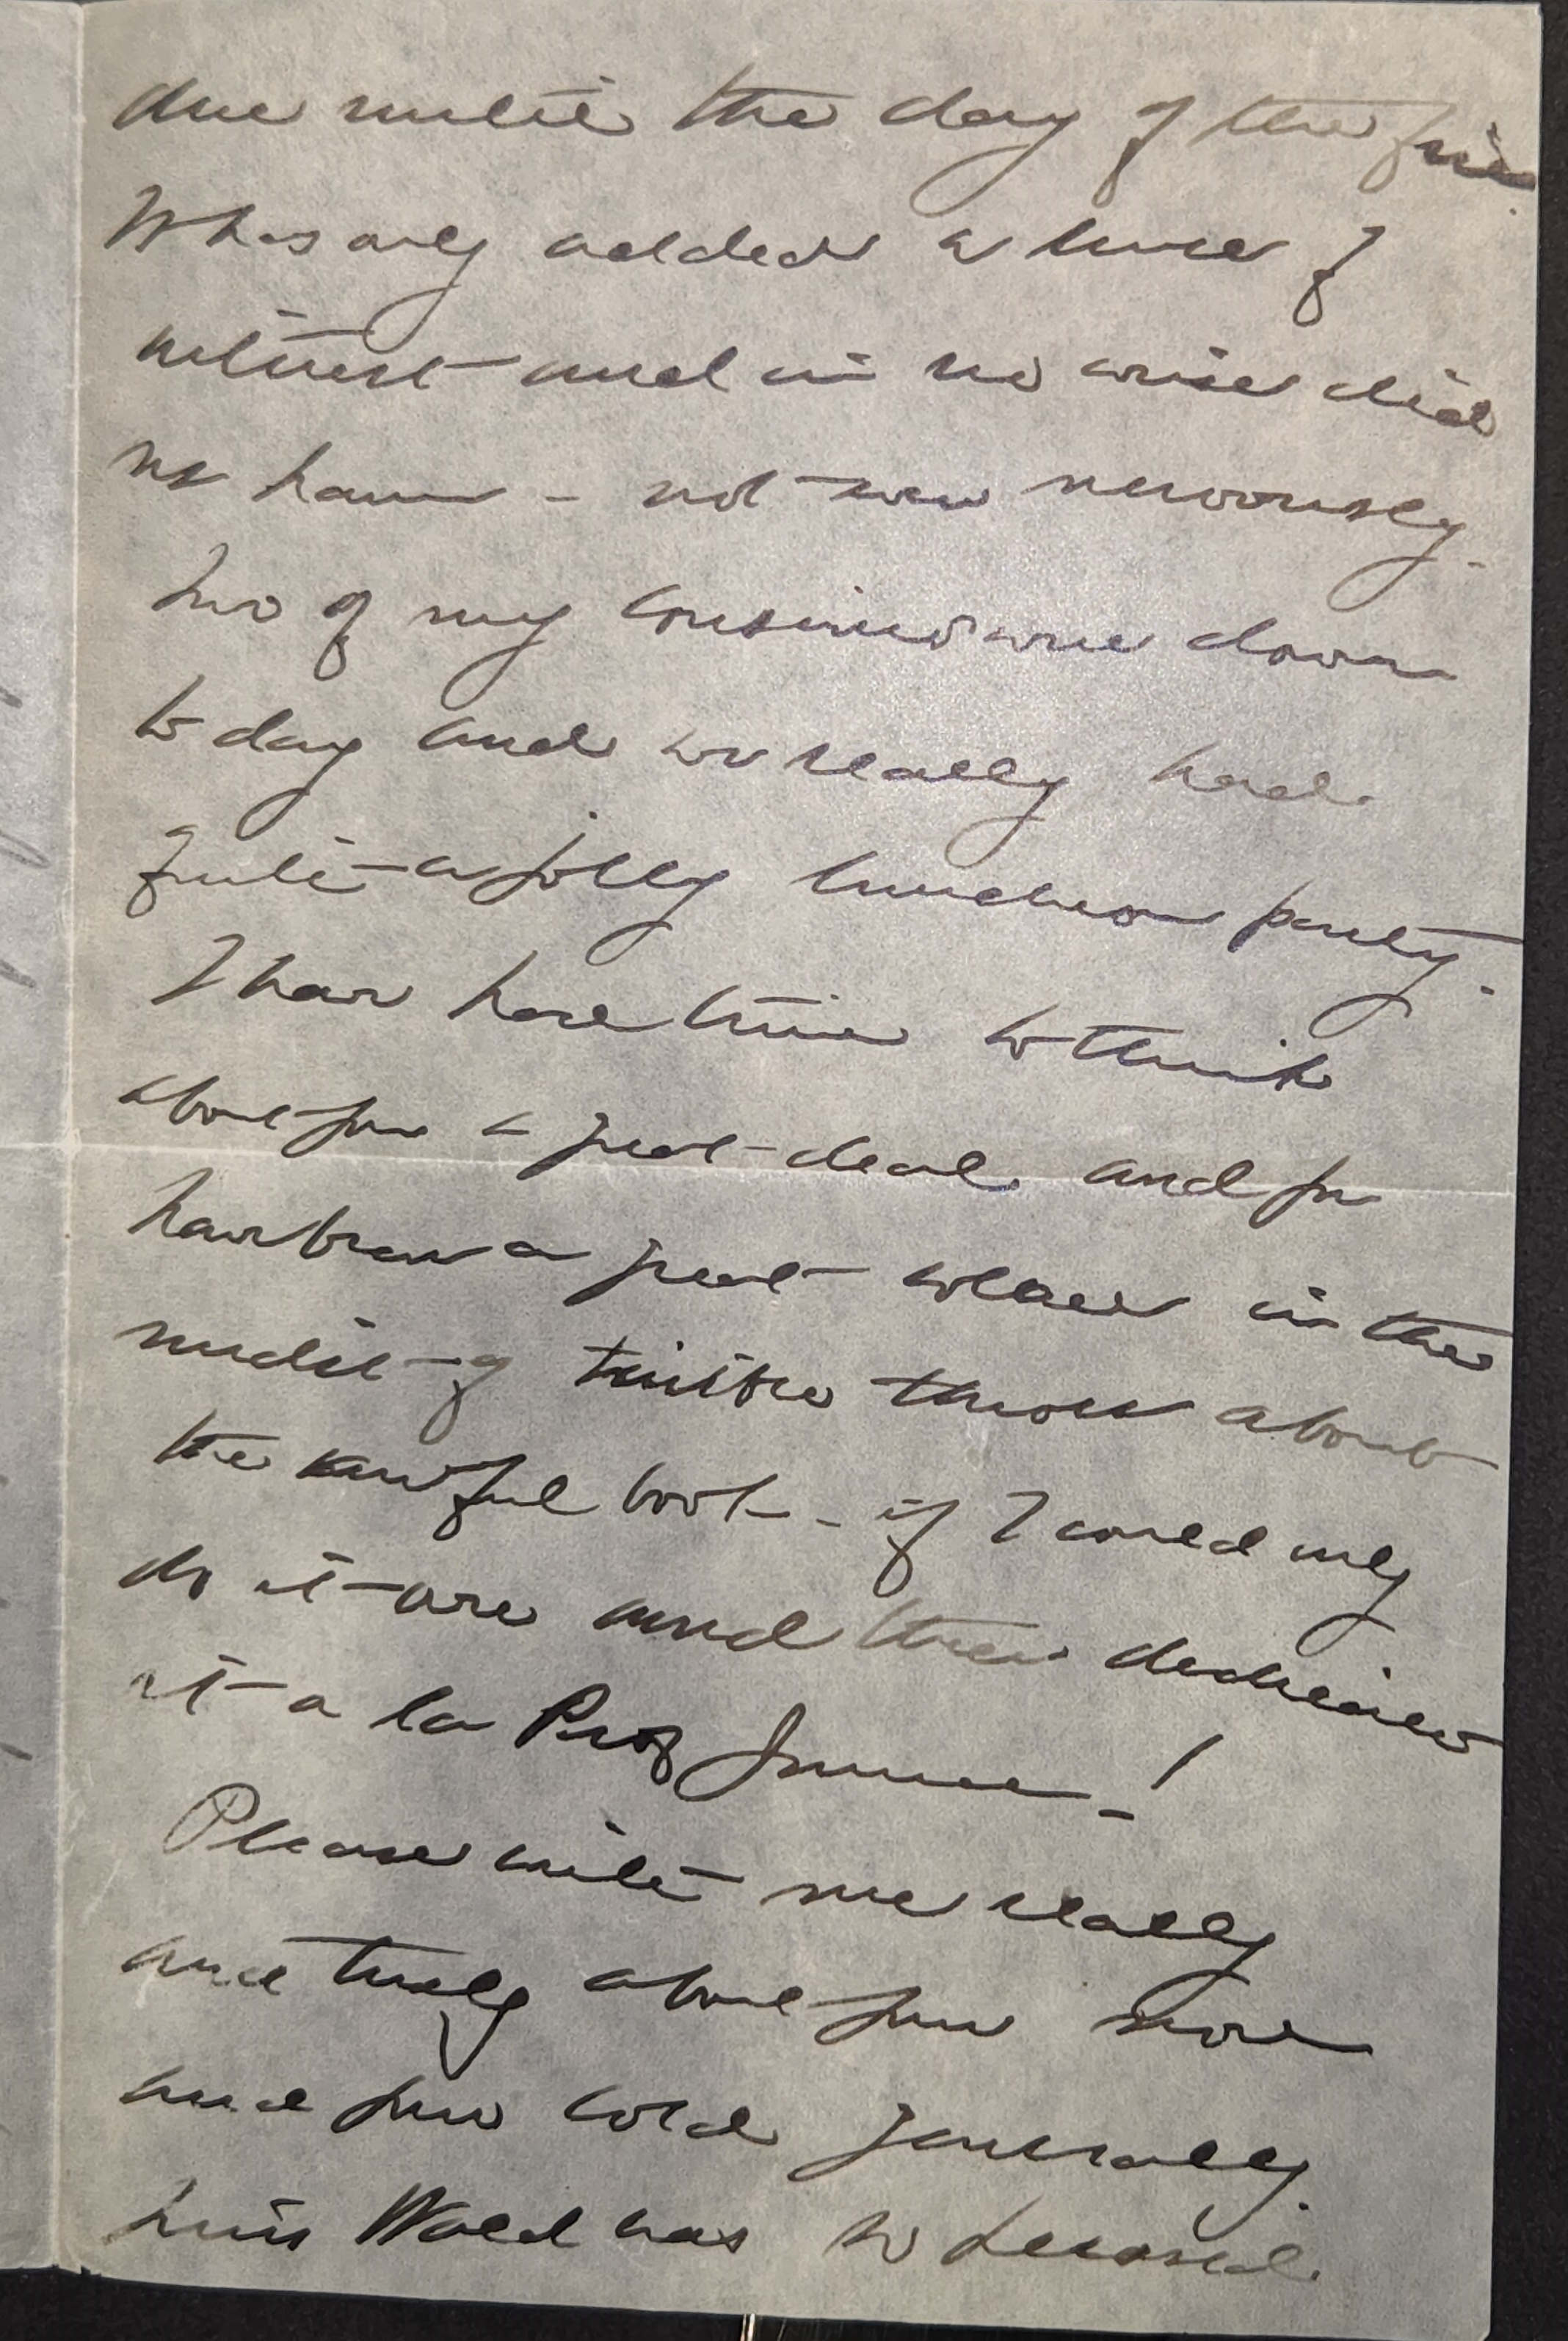 due until the day of the fire
It has only added a line of
interest and in no wise did
me harm - not even nervously.
Two of my cousins were down
to day and we really had
quite a jolly luncheon party.
I have had time to think
about you a great deal and you
have been a great solace in the
midst of throes about
the awful book - if I could only
do it over and then dedicate
it a la Prof
Please write me really
and truly about you now
and your cold generally.
Miss Wald was so pleased